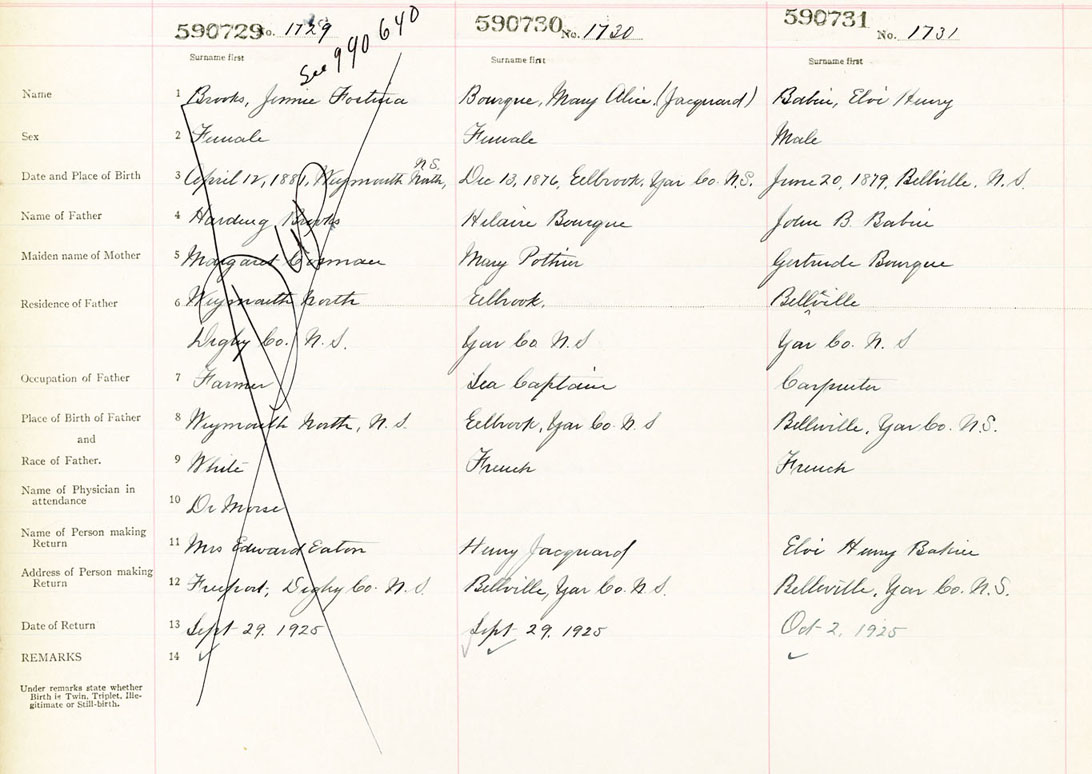 590729 No. 1729
See 990640
590730 No. 1730
590731 No. 1731
Surname first Surname first Surname first
Name 1 Brooks, Jennie Bourque, Mary Alice (Jacquard) Babin, Elvi Henry
Sex 2 Female Female Male
Date and Place of Birth 3 April 12, 1881, Weymouth North, N.S. Dec 13, 1876, Eelbrook, Yar Co. N.S. June 20, 1879, Bellville, N.S.
Name of Father 4 Harding Brooks Hilaire Bourque John B. Babin
Maiden name of Mother 5 Margaret Mary Pothier Gertrude Bourque
Residence of Father 6 Weymouth North Eelbrook, Bellville
Digby Co. N.S. Yar Co N.S Yar Co. N.S
Occupation of Father 7 Farmer Sea Captain Carpenter
Place of Birth of Father 8 Weymouth North, N.S. Eelbrook, Yar Co. N.S Bellville, Yar Co. N.S.
and
Race of Father. 9 White French French
Name of Physician in
attendance 10 Dr Morse
Name of Person making
Return 11 Mrs Edward Eaton Henry Jacquard Elvi Henry Babin
Address of Person making
Return 12 Freeport, Digby Co. N.S. Bellville, Yar Co. N.S. Belleville, Yar Co. N.S.
Date of Return 13 Sept 29, 1925 Sept 29, 1925 Oct 2, 1925
REMARKS 14
Under remarks state whether
Birth is Twin, Triplet, Ille-
gitimate or Still-birth.